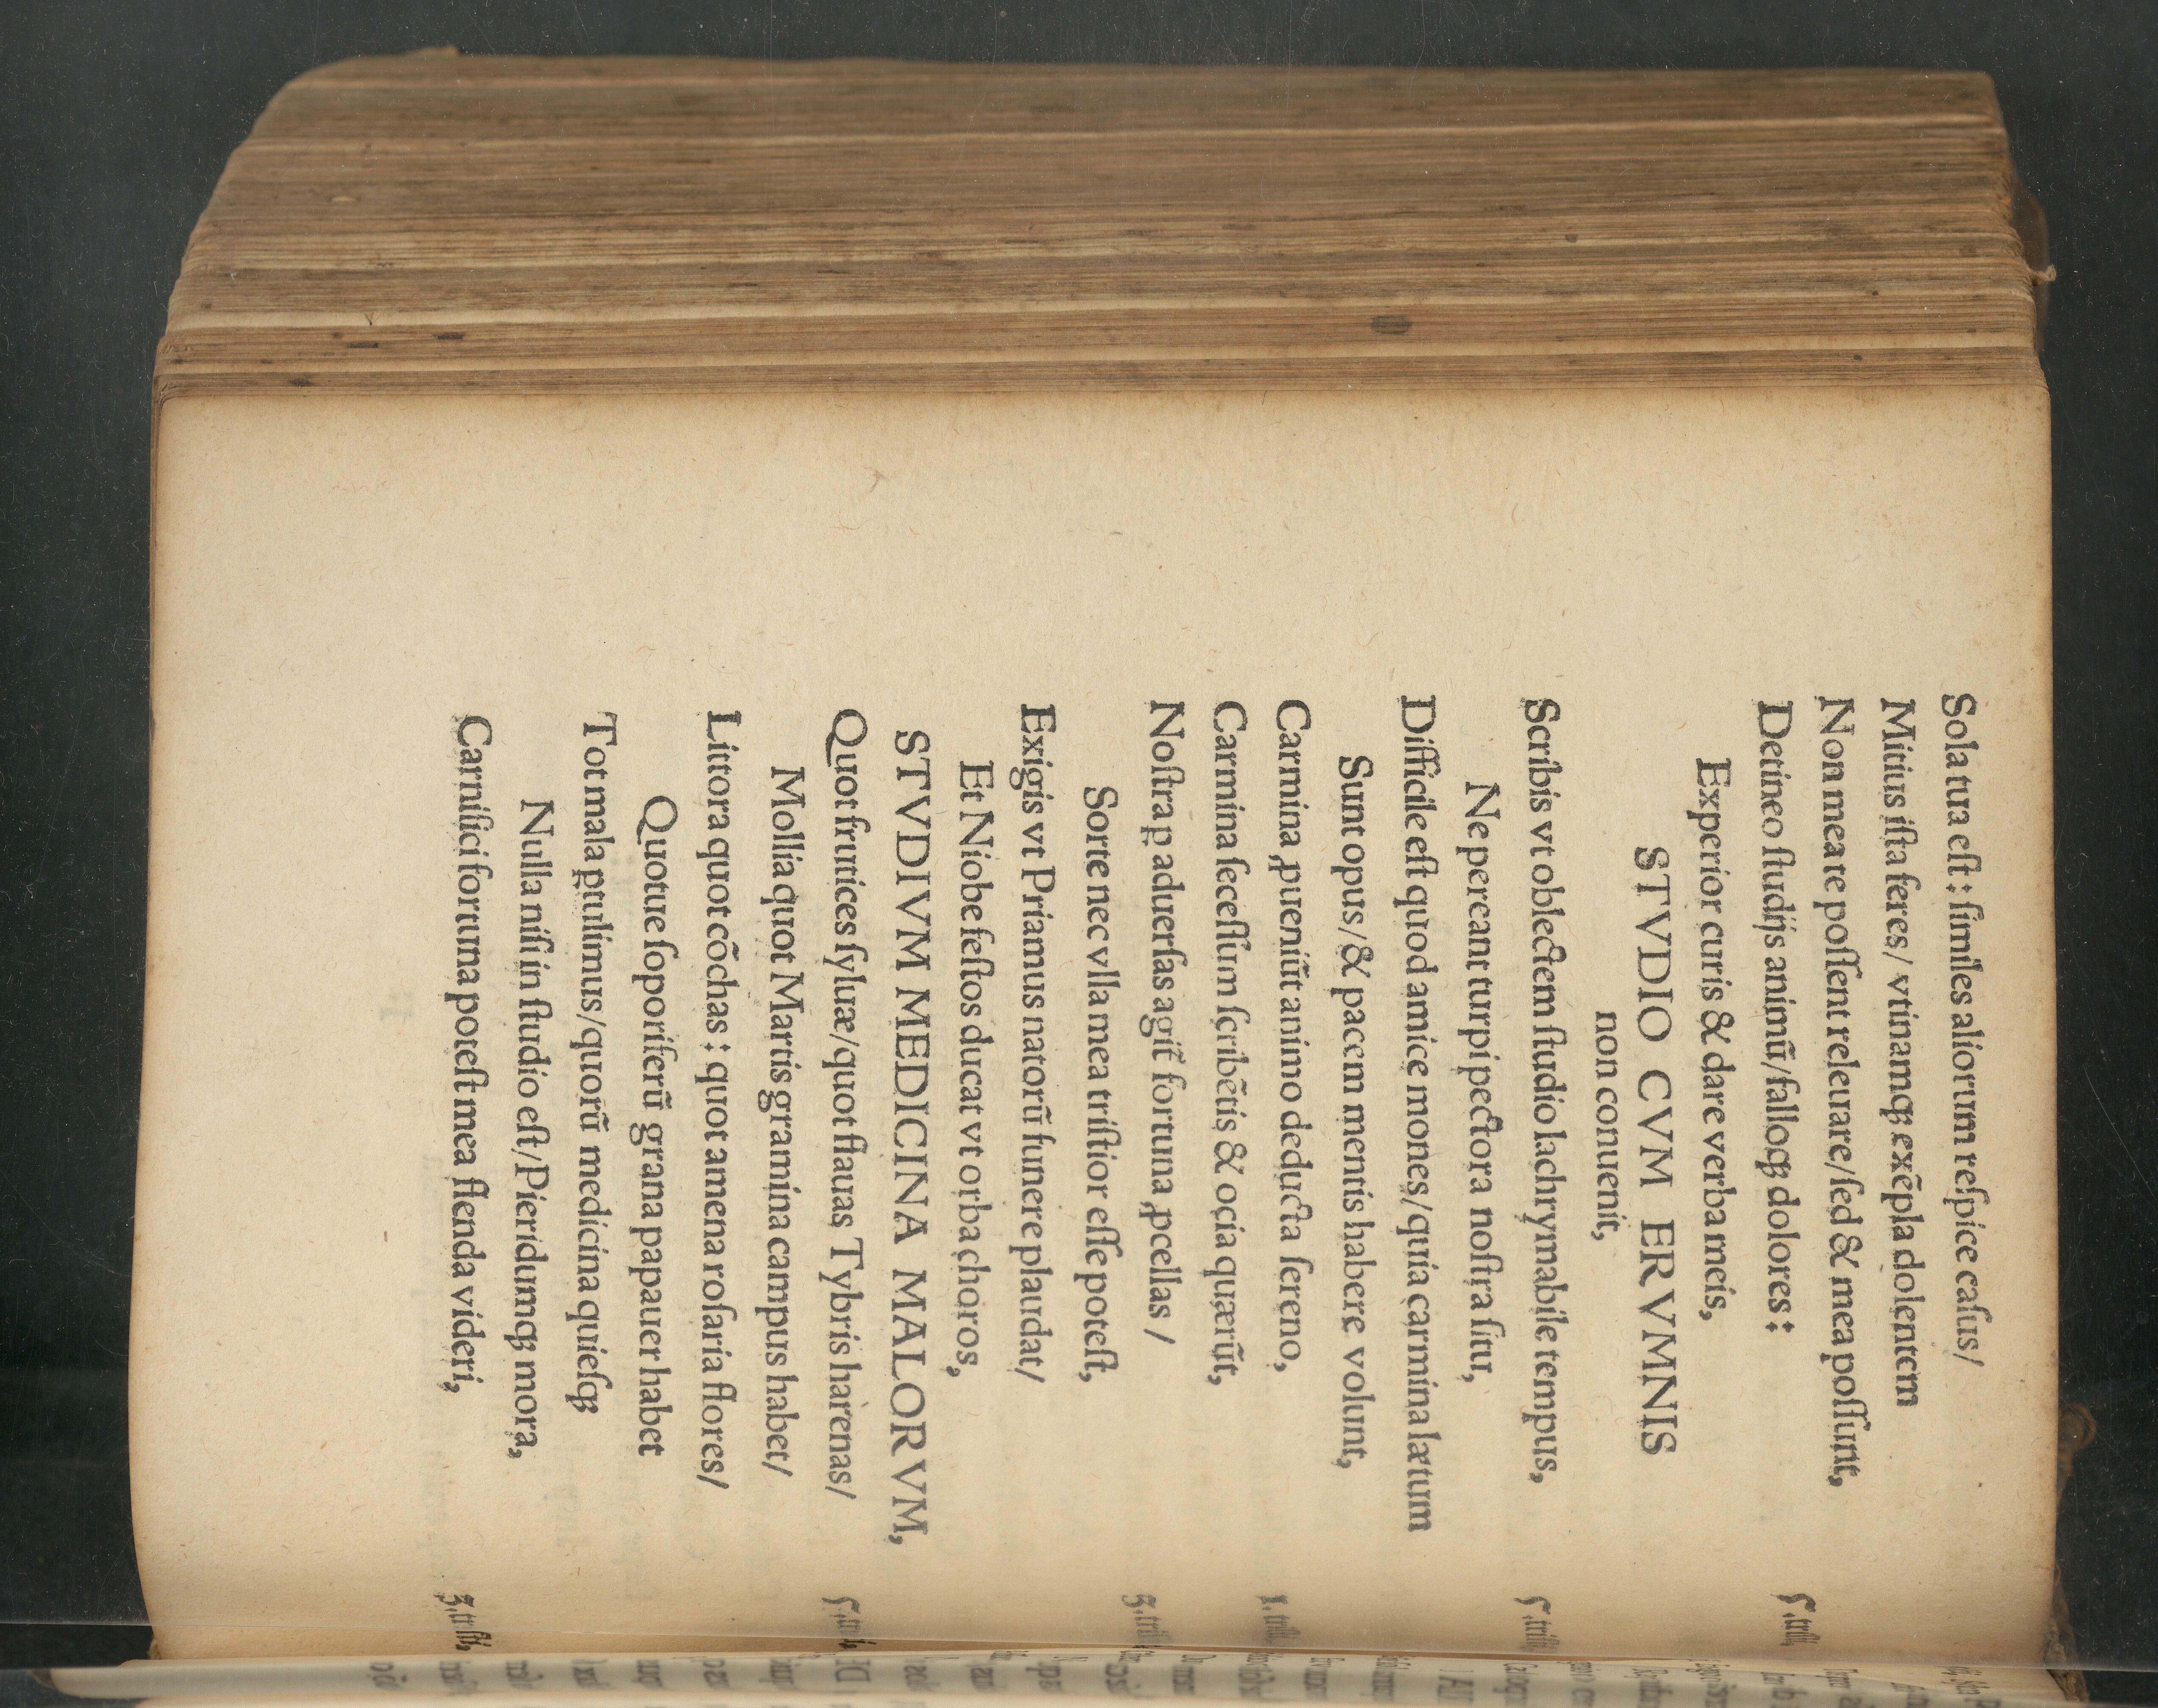 Sola tua est : similes aliorum respice casus/
Mitius ista feres/ vtinamqȝ exẽpla dolentem
Non mea re possent releuare/sed & mea possunt,
Detineo studijs animũ/falloqȝ dolores : 5,trist,
Experior curis & dare verba meis,
STVDIO CVM ERVMNIS
non conuenit,
Scribis vt oblectem studio lachrymabile tempus, 5,trist,
Ne pereant turpi pectora nostra situ,
Difficile est quod amice mones/quia carmina lætum
Sunt opus/& pacem mentis habere volunt,
Carmina ꝓueniũt animo deducta sereno, 1,trist,
Carmina secessum scribẽtis & ocia quærũt,
Nostra ꝑ aduersas agit̃ fortuna ꝓcellas / 5,trist
Sorte nec vlla mea tristior esse potest,
Exigis vt Priamus natorũ funere plaudat/
Et Niobe festos ducat vt orba choros,
STVDIVM MEDICINA MALORVM,
Quot frutices syluæ/quot flauas Tybris harenas/
Mollia quot Martis gramina campus habet/
Littora quot cõchas : quot amena rosaria flores/
Quotue soporiferũ grana papauer habet
Tot mala ꝑtulimus/quorũ medicina quiesqȝ
Nulla nisi in studio est/Pieridumqȝ mora,
Carnifici fortuna potest mea flenda videri, 3,trist,